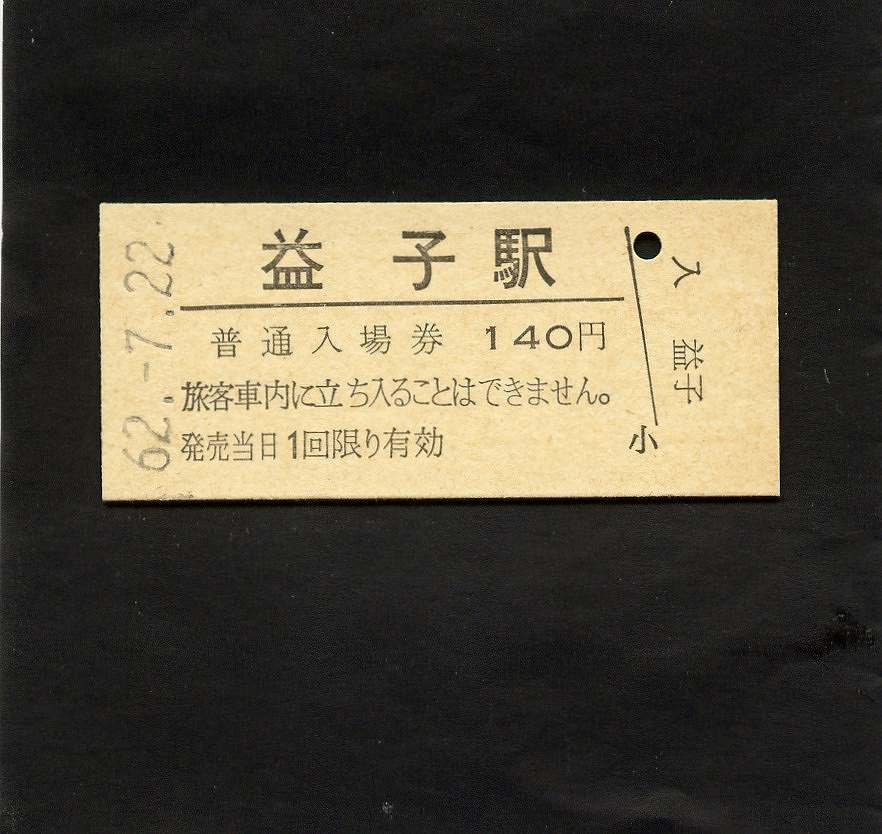 益子駅
普通入場券 140円
旅客車内に立ち入ることはできません。
発売当日1回限り有効
62.-7.22
入 益子
小